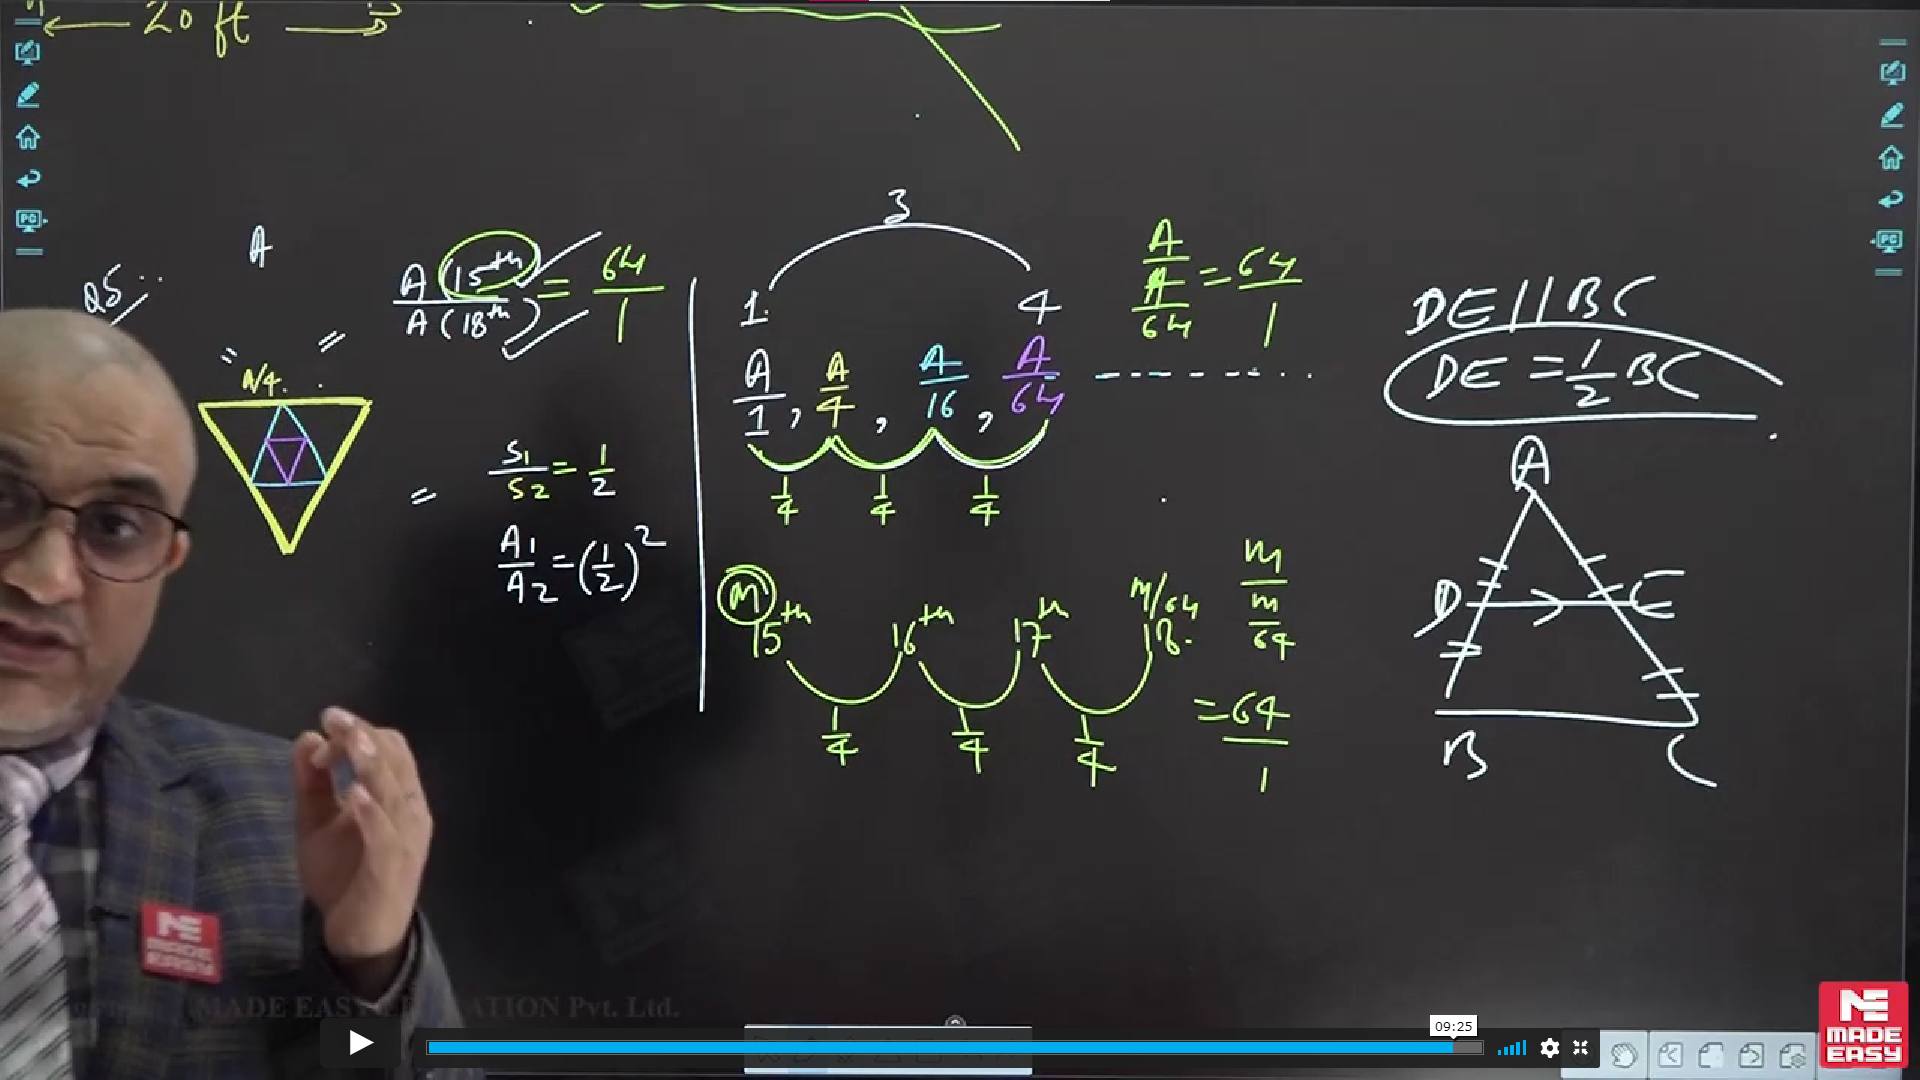 20 ft
Q5..
A
A(15th) / A(18th) = 64/1
A/4.
S1/S2 = 1/2
A1/A2 = (1/2)^2
3
1. 4
A/1, A/4, A/16, A/64
1/4 1/4 1/4
A / (A/64) = 64/1
M M/64
15th 16th 17th 18.
1/4 1/4 1/4
m / (m/64)
= 64/1
DE || BC
DE = 1/2 BC
A
D E
B C
PC
PC
MADE EASY
MADE EASY
Pvt. Ltd.
09:25
MADE EASY